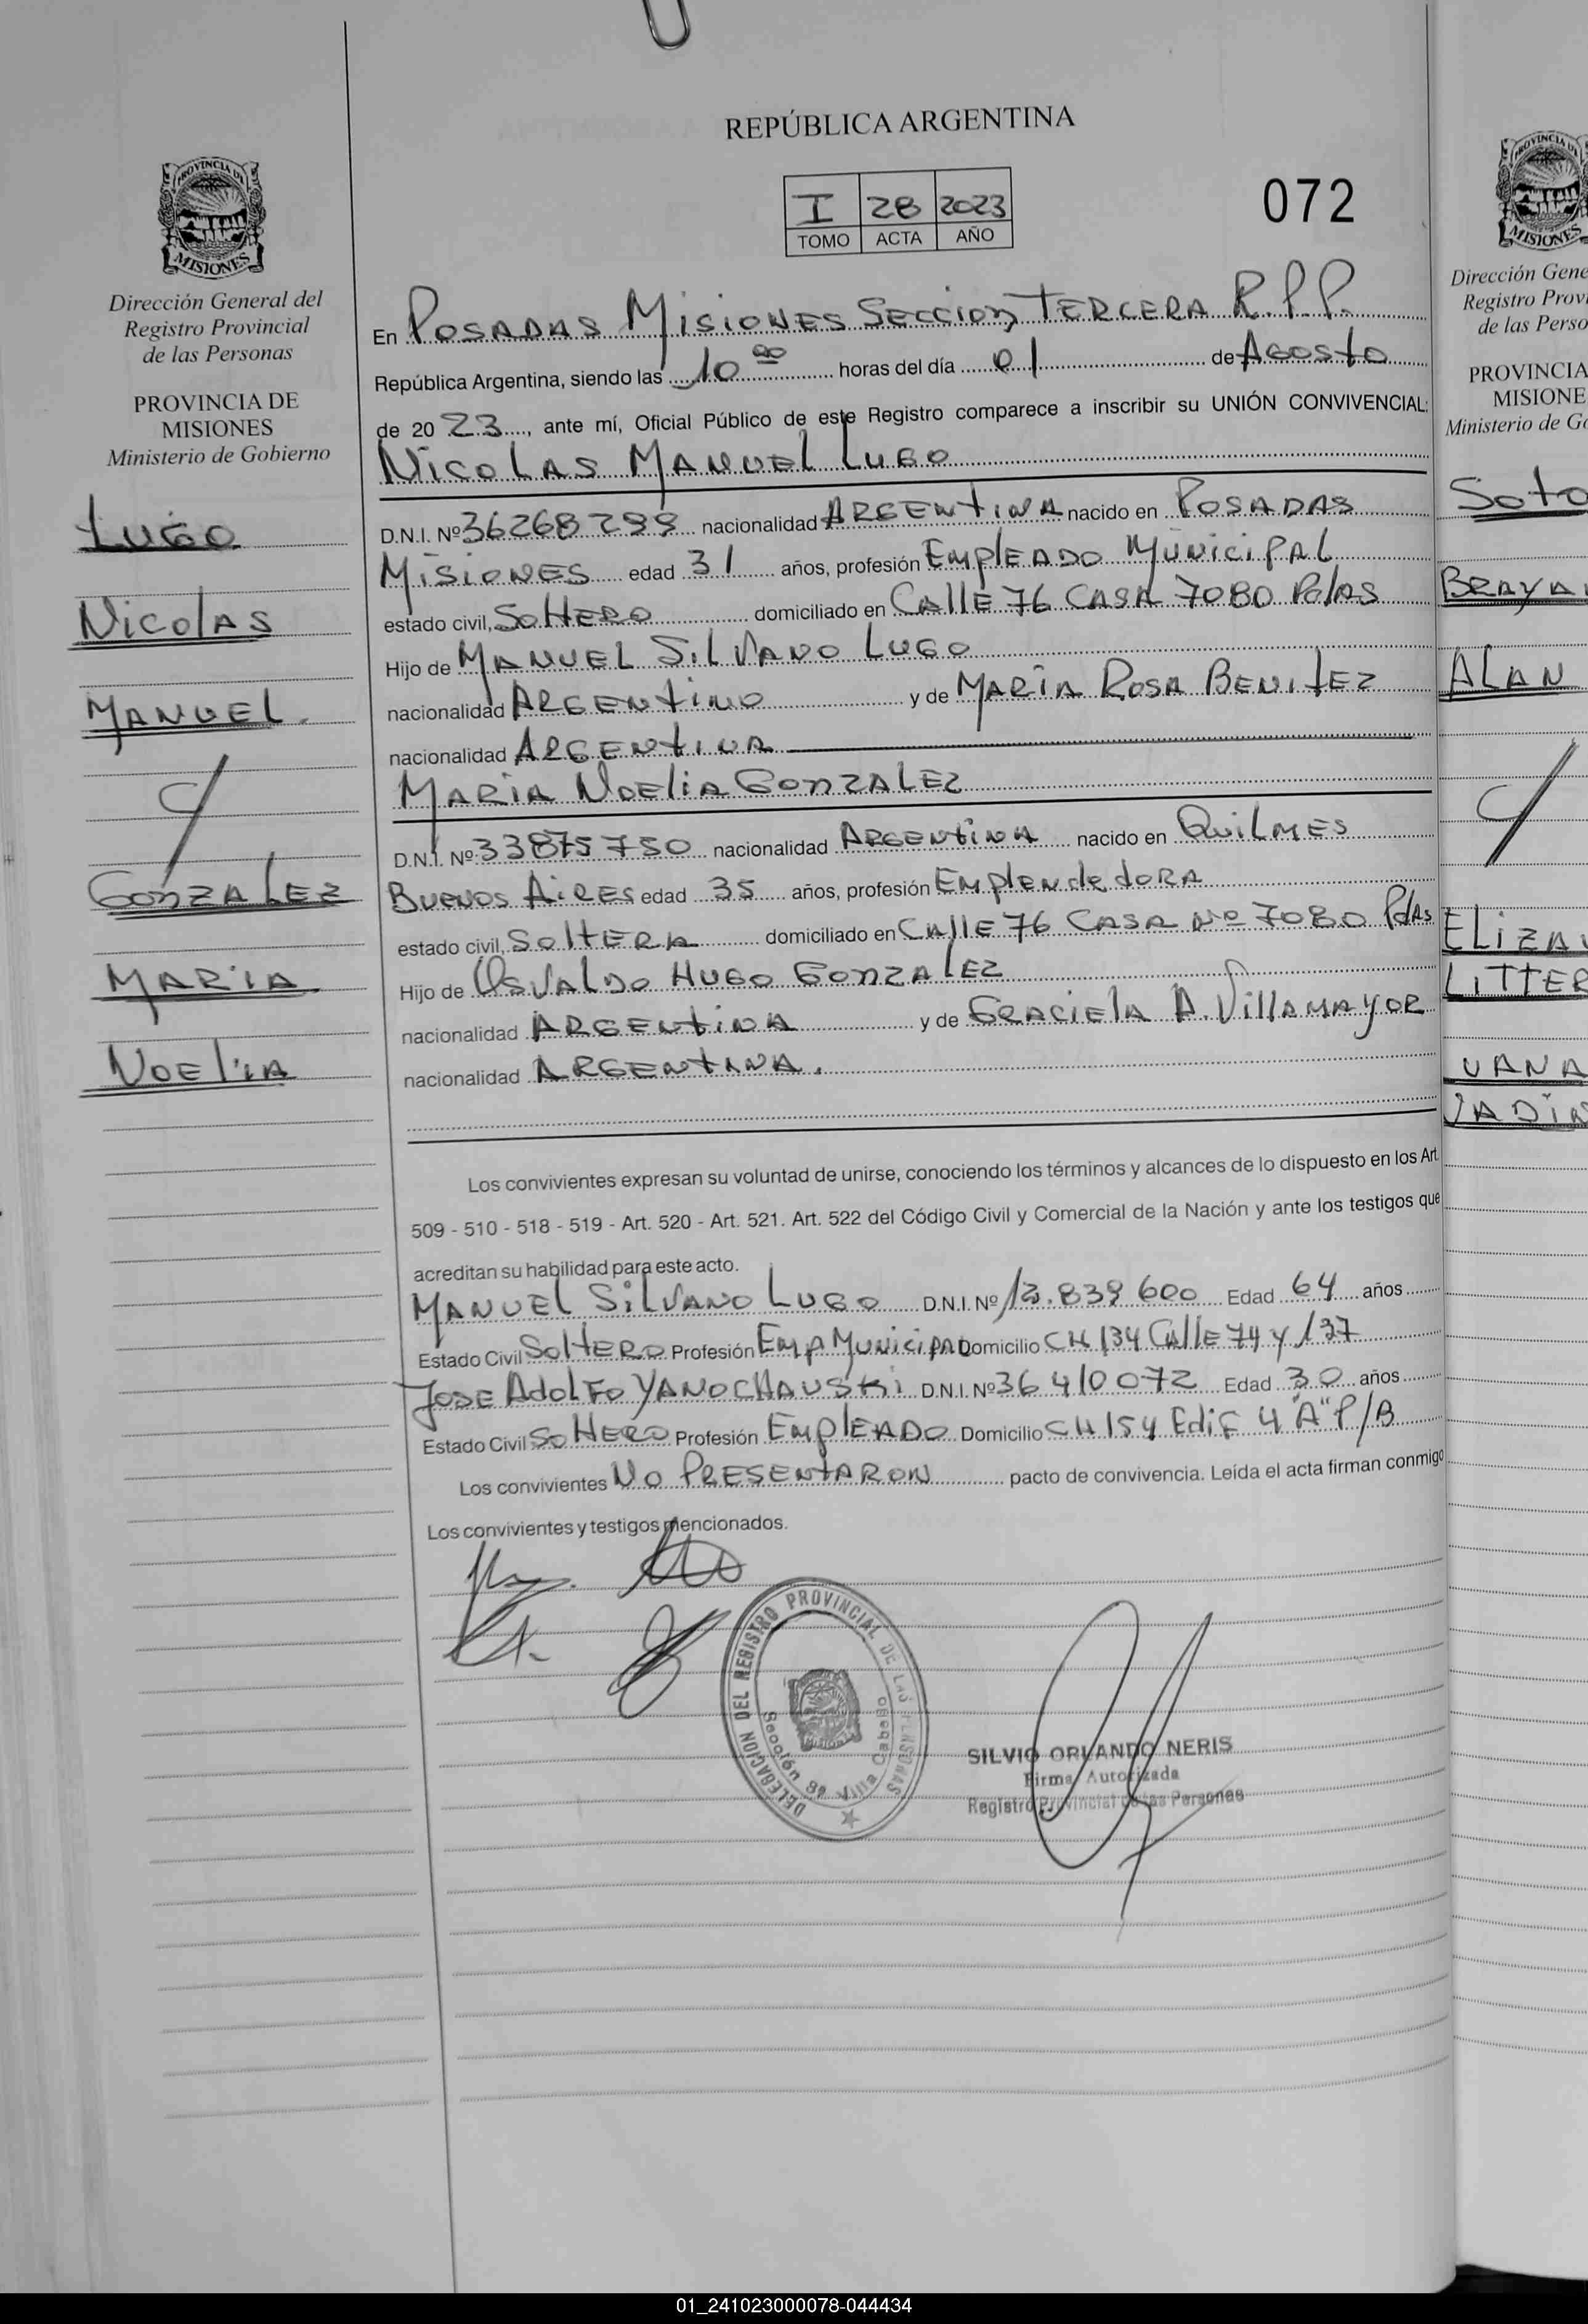 REPÚBLICA ARGENTINA
I 28 2023
TOMO ACTA AÑO
072
PROVINCIA DE
MISIONES
Dirección General del
Registro Provincial
de las Personas
PROVINCIA DE
MISIONES
Ministerio de Gobierno
LUGO
NicolAS
MANUEL.
y
GONZALEZ
MARIA
NOELIA
En POSADAS MISIONES SECCION TERCERA R.P.P.
República Argentina, siendo las 10 00 horas del día 01 de Agosto
de 2023, ante mí, Oficial Público de este Registro comparece a inscribir su UNIÓN CONVIVENCIAL:
NICOLAS MANUEL LUGO
D.N.I. Nº 36268299 nacionalidad ARGENTINA nacido en POSADAS
MISIONES edad 31 años, profesión EMPLEADO MUNICIPAL
estado civil, SOLTERO domiciliado en CALLE 76 CASA 7080 Pdas
Hijo de MANUEL SILVANO LUGO
nacionalidad ARGENTINO y de MARIA ROSA BENITEZ
nacionalidad ARGENTINA
MARIA NOELIA GONZALEZ
D.N.I. Nº 33875750 nacionalidad ARGENTINA nacido en QUILMES
BUENOS AIRES edad 35 años, profesión EMPLENDEDORA
estado civil, SOLTERA domiciliado en CALLE 76 CASA Nº 7080 Pdas
Hijo de OSVALDO HUGO GONZALEZ
nacionalidad ARGENTINA y de GRACIELA A. VILLAMAYOR
nacionalidad ARGENTINA.
Los convivientes expresan su voluntad de unirse, conociendo los términos y alcances de lo dispuesto en los Art.
509 - 510 - 518 - 519 - Art. 520 - Art. 521. Art. 522 del Código Civil y Comercial de la Nación y ante los testigos que
acreditan su habilidad para este acto.
MANUEL SILVANO LUGO D.N.I. Nº 13.839600 Edad 64 años
Estado Civil SOLTERO Profesión EMP MUNICIPAL Domicilio CH 134 CALLE 74 y 137
JOSE ADOLFO YANOCHAUSKI D.N.I. Nº 36410072 Edad 30 años
Estado Civil SOLTERO Profesión EMPLEADO Domicilio CH 154 Edif 4 "A" P/B
Los convivientes NO PRESENTARON pacto de convivencia. Leída el acta firman conmigo
Los convivientes y testigos mencionados.
DELEGACION DEL REGISTRO PROVINCIAL DE LAS PERSONAS
Villa Cabello
SILVIO ORLANDO NERIS
Firma Autorizada
Registro Provincial de las Personas
PROVINCIA DE
MISIONES
Dirección Gene
Registro Provi
de las Perso
PROVINCIA
MISIONE
Ministerio de Go
Soto
BRAYA
ALAN
y
ELIZA
LITTER
VANA
01_241023000078-044434